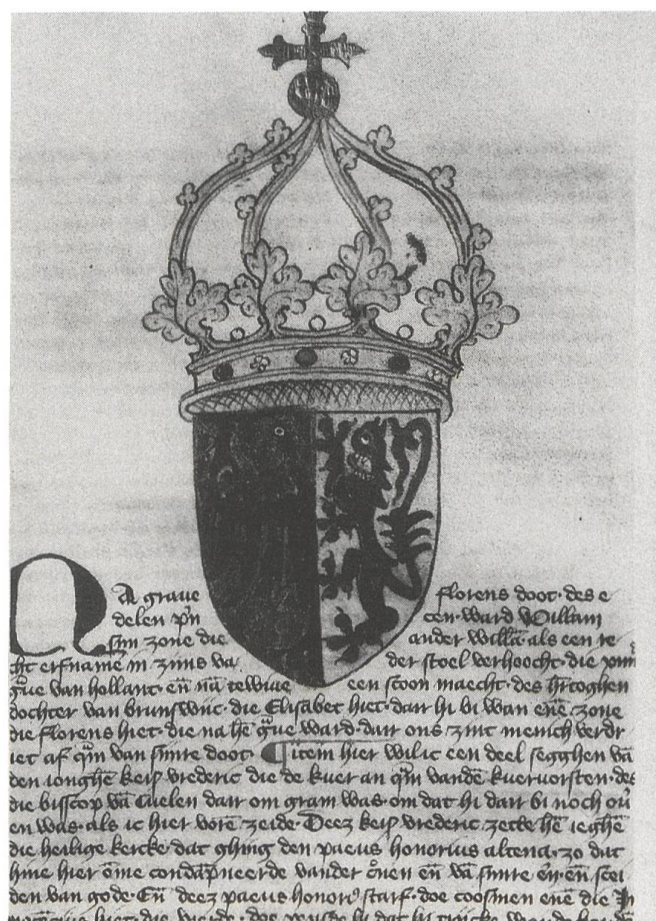 NA graue florens doot · des e
delen pn̄ cen · ward Willam
sijn zone die ander willā · als een re
cht erfname in zijns va der stoel verhoocht · die xiiij
gue van hollant · eñ nā te wiue een scoon maecht · des h̄rtoghen
dochter van brunswijc · die Elisabet hiet · dair hi bi wan enē zone
die florens hiet · die na hē gue ward · dair ons zint menich verdr
iet af qm̄ van sinre doot · ¶ item hier wil ic een deel segghen vā
den ionghē keiß vrederic die de kuer an qm̄ vandē kuervorsten · des
die bisscop vā Cuelen dair om gram was · om dat hi dair bi noch ou
en was · als ic hier vorē zeide · Deez keiß vrederic zette hē ieghē
die heilige kercke · dat ghing den paeus honorius altena · zo dat
hine hier ōme condāpneerde vander cronen eñ vā sinre eren · eñ scei
den van gode · Eñ deez paeus honori⁹ starf · doe coosmen enē die In
hiet · die vierde · doe